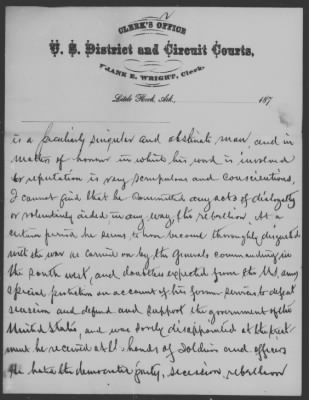 CLERK'S OFFICE
U. S. District and Circuit Courts,
FRANK E. WRIGHT, Clerk.
Little Rock, Ark., 187
is a peculiarly singular and obstinate man, and in
matters of honour in which his word is involved
or reputation is very scrupulous and conscientious.
I cannot find that he committed any acts of disloyalty
or voluntarily aided in any way, the rebellion. At a
certain period he seems to have become thoroughly disgusted
with the war as carried on by the Generals commanding in
the South west, and doubtless expected from the U.S. any
special protection on account of his former services to defeat
secession and defend and support the government of the
United States, and was sorely disappointed at the treat
ment he received at the hands of Soldiers and officers
He hates the democratic party, secession, rebellion